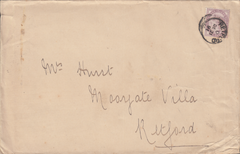 Mrs Hurst
Moorgate Villa
Retford